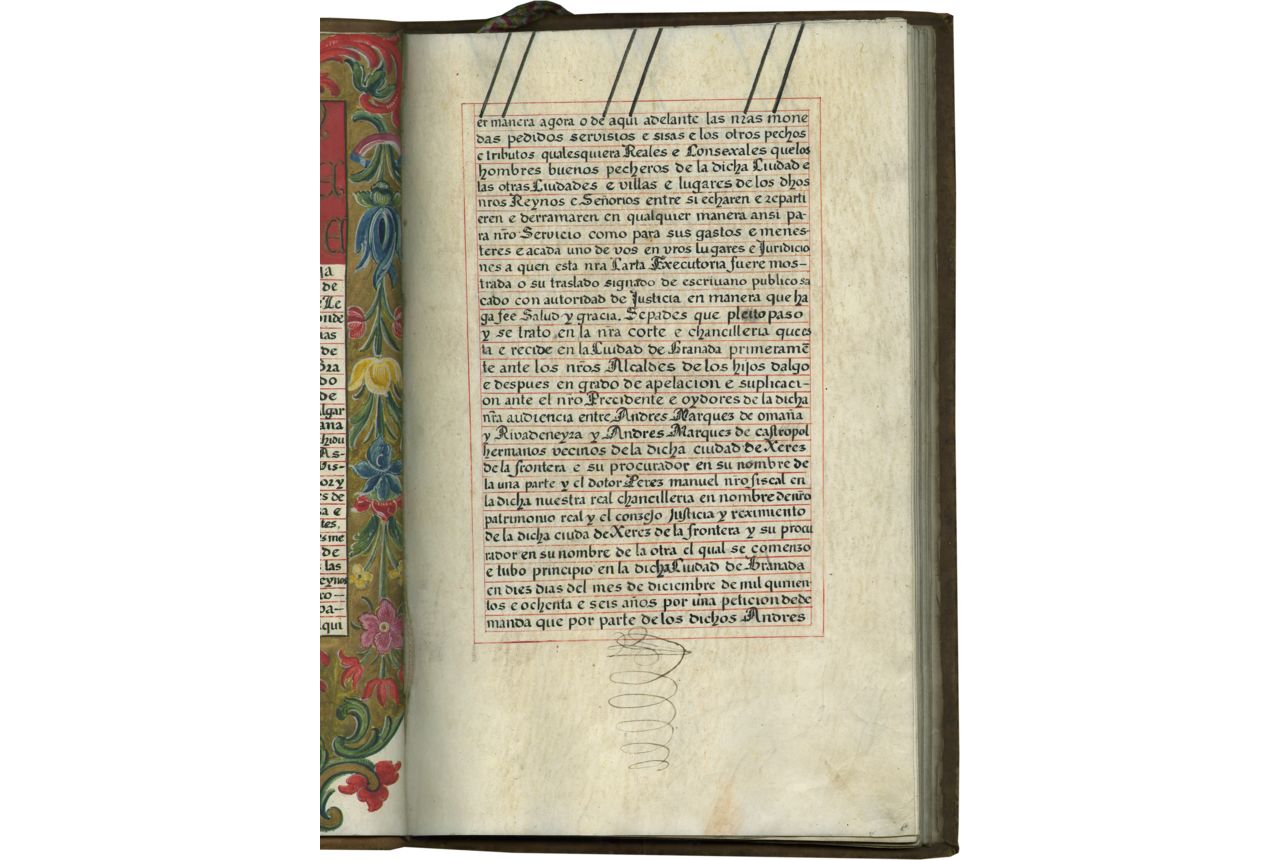 R
A
E
ja
de
Le
onde
nas
de
Gra
do
de
algar
ana
hidu
As-
Dis-
or y
es de
a e
tes,
es me
de
las
Reynos
co-
pa-
qui
er manera agora o de aqui adelante las nr̃as mone
das pedidos servisios e sisas e los otros pechos
e tributos qualesquiera Reales e Consexales que los
hombres buenos pecheros de la dicha Ciudad e
las otras Ciudades e villas e lugares de los dhos
nros Reynos e Señorios entre si echaren e reparti
eren e derramaren en qualquier manera ansi pa-
ra nr̃o Servicio como para sus gastos e menes-
teres e acada uno de vos en vros lugares e Juridicio
nes a quen esta nra Carta Executoria fuere mos-
trada o su traslado signado de escriuano publico sa
cado con autoridad de Justicia en manera que ha
ga fee Salud y gracia. Sepades que pleito paso
y se trato en la nr̃a corte e chancilleria que es
ta e recide en la Ciudad de Granada primeramẽ
te ante los nr̃os Alcaldes de los hijos dalgo
e despues en grado de apelacion e suplicaci-
on ante el nr̃o Precidente e oydores de la dicha
nr̃a audiencia entre Andres Marquez de omaña
y Rivadeneyra y Andres Marquez de castropol
hermanos vecinos dela dicha ciudad de Xerez
de la frontera e su procurador en su nombre de
la una parte y el dotor Perez manuel nr̃o fiscal en
la dicha nuestra real chancilleria en nombre de nr̃o
patrimonio real y el consejo Justicia y reximiento
de la dicha ciuda de Xerez de la frontera y su procu
rador en su nombre de la otra el qual se comenzo
e tubo principio en la dicha Ciudad de Granada
en diez dias del mes de diciembre de mil quinien
tos e ochenta e seis años por una peticion de de
manda que por parte de los dichos Andres